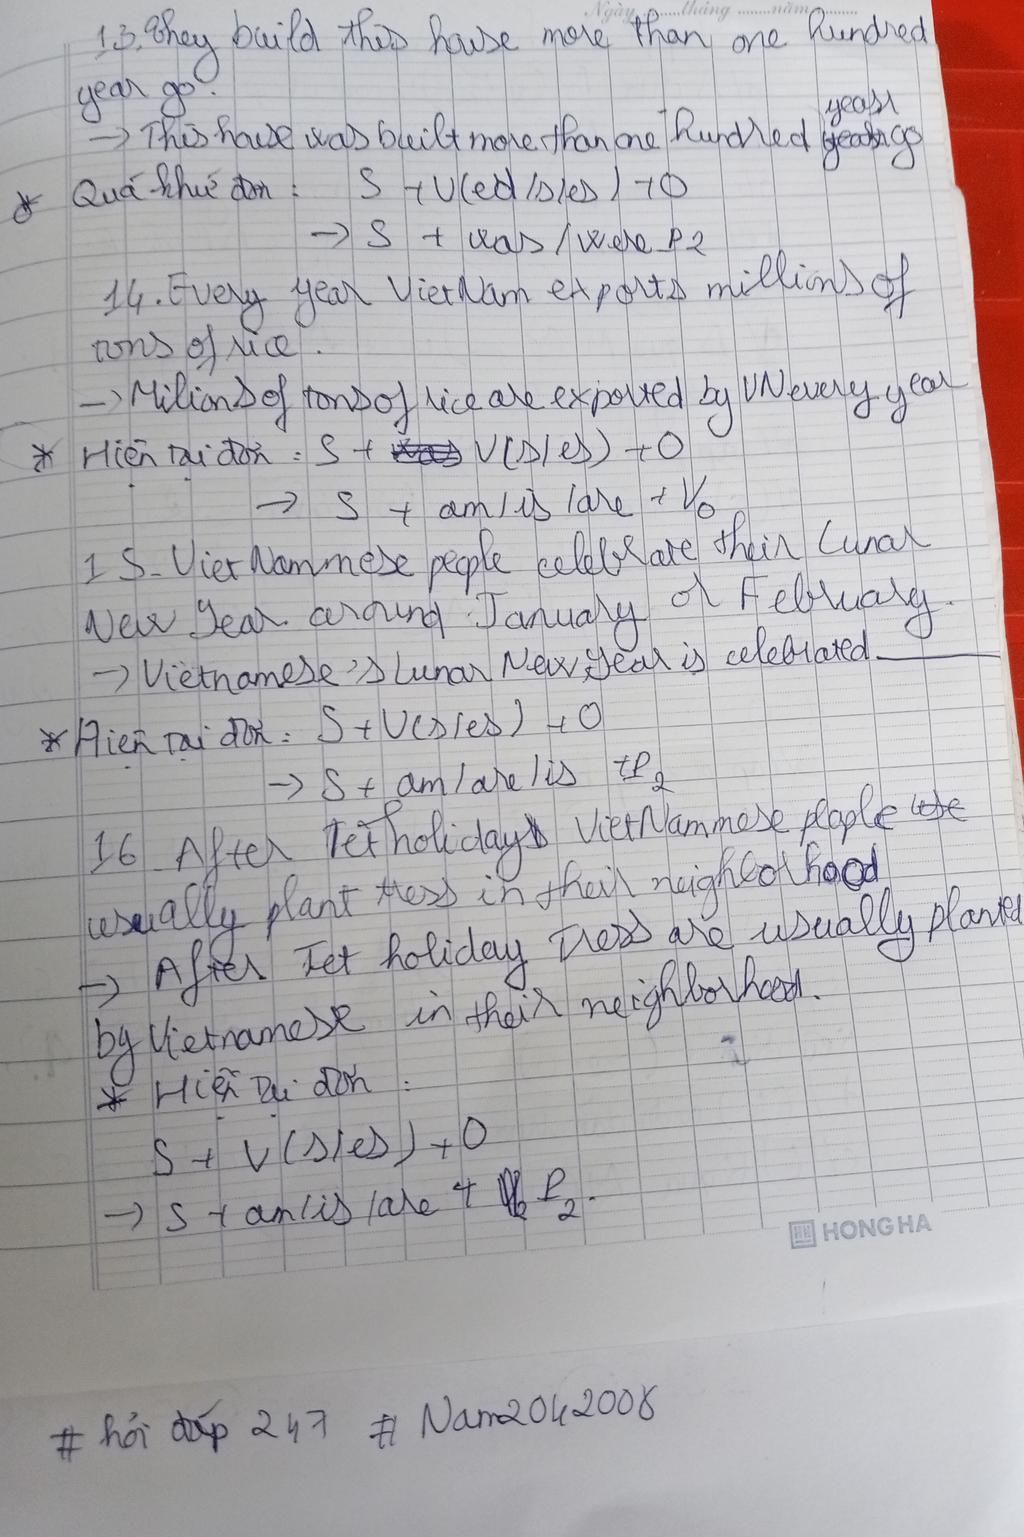 Ngày ......tháng ......năm.........
13. They build this house more than one hundred
year go.
→ This house was built more than one hundred years ago
* Quá khứ đơn : S + V(ed/s/es) + O
→ S + was / were P2
14. Every year VietNam exports millions of
tons of rice.
→ Milions of tons of rice are exported by VN every year
* Hiện tại đơn : S + V(s/es) + O
→ S + am / is / are + Vo
15. VietNammese people celebrate their Lunar
New Year around January or February.
→ Vietnamese's Lunar New Year is celebrated
* Hiện tại đơn : S + V(s/es) + O
→ S + am / are / is + P2
16 After Tet holidays VietNammese people
usually plant tress in their neighborhood
→ After Tet holiday Tress are usually planted
by Vietnamese in their neighborhood.
* Hiện tại đơn :
S + V(s/es) + O
→ S + am / is / are + P2.
HONG HA
# hỏi đáp 247 # Nam2042008